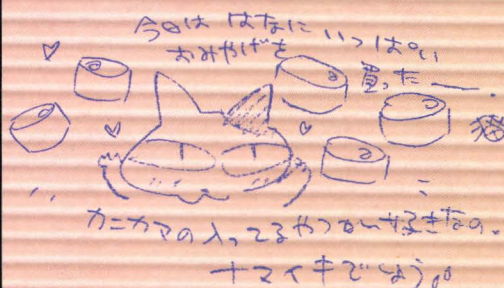 今日は はなに いっぱい
おみやげを
買ったー.
猫
カニカマの入ってるやつがい好きなの。
ナマイキでしょう。